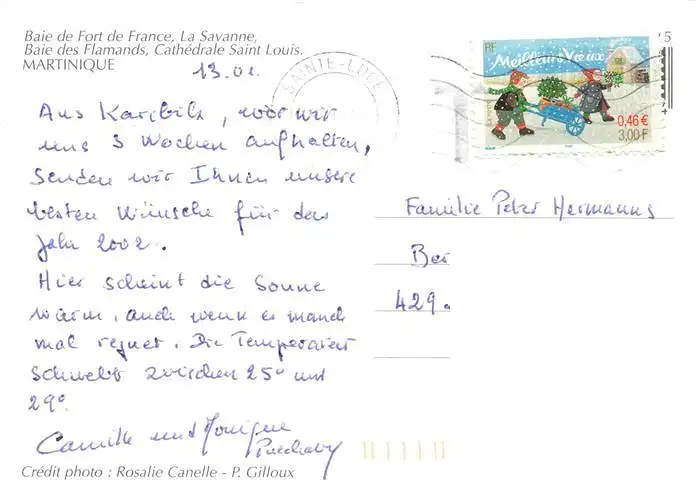 Baie de Fort de France, La Savanne,
Baie des Flamands, Cathédrale Saint Louis.
MARTINIQUE
13.01.
Aus Karibik, wor wir
uns 3 Wochen aufhalten,
senden wir Ihnen unsere
besten Wünsche für das
Jahr 2002.
Hier scheint die Sonne
warm, auch wenn es manch
mal regnet. Die Temperatur
schwebt zwischen 25° und
29°.
Camille und Monique
Crédit photo : Rosalie Canelle - P. Gilloux
SAINTE-LUCE
RF
Meilleurs Vœux
0,46 €
3,00 F
Familie Peter Hermanns
Ber
429